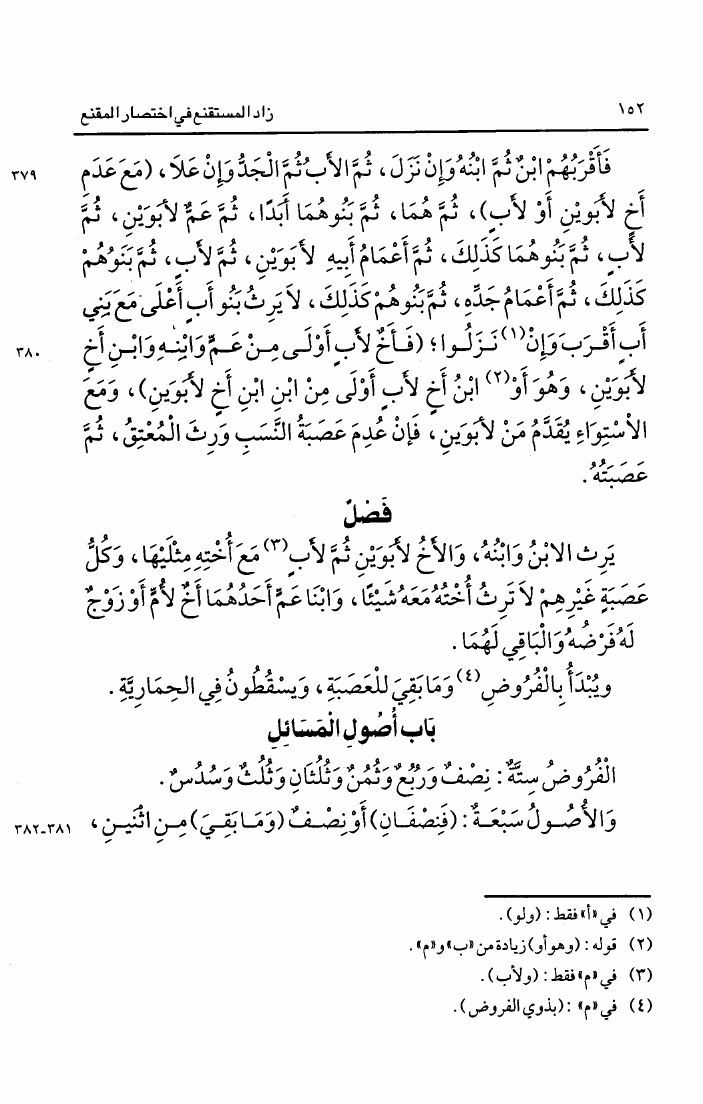 ١٥٢ زاد المستقنع في اختصار المقنع
فَأَقْرَبُهُمْ ابْنٌ ثُمَّ ابْنُهُ وَإِنْ نَزَلَ، ثُمَّ الأبُ ثُمَّ الْجَدُّ وَإِنْ عَلاَ، (مَعَ عَدَمِ ٣٧٩
أَخٍ لأَبَوَيْنِ أَوْ لأَبٍ)، ثُمَّ هُمَا، ثُمَّ بَنُوهُمَا أَبَدًا، ثُمَّ عَمٌّ لأبَوَيْنِ، ثُمَّ
لأَبٍ، ثُمَّ بَنُوهُمَا كَذَلِكَ، ثُمَّ أَعْمَامُ أَبِيهِ لأَبَوَيْنِ، ثُمَّ لأَبٍ، ثُمَّ بَنُوهُمْ
كَذَلِكَ، ثُمَّ أَعْمَامُ جَدِّهِ، ثُمَّ بَنُوهُمْ كَذَلِكَ، لاَ يَرِثُ بَنُو أَبٍ أَعْلَى مَعَ بَنِي
أَبٍ أَقْرَبَ وَإِنْ(١) نَزَلُوا؛ (فَأَخٌ لأَبٍ أَوْلَى مِنْ عَمٍّ وَابْنِهِ وَابْنِ أَخٍ ٣٨٠
لأَبَوَيْنِ، وَهُوَ أَوْ(٢) ابْنُ أَخٍ لأَبٍ أَوْلَى مِنْ ابْنِ ابْنِ أَخٍ لأَبَوَينِ)، وَمَعَ
الاُسْتِوَاءِ يُقَدَّمُ مَنْ لأَبَوَينِ، فَإِنْ عُدِمَ عَصَبَةُ النَّسَبِ وَرِثَ الْمُعْتِقُ، ثُمَّ
عَصَبَتُهُ.
فَصْلٌ
يَرِث الابْنُ وَابْنُهُ، وَالأخُ لأَبَوَيْنِ ثُمَّ لأَبٍ(٣) مَعَ أُخْتِهِ مِثْلَيْهَا، وَكُلُّ
عَصَبَةٍ غَيْرِهِمْ لاَ تَرِثُ أُخْتُهُ مَعَهُ شَيْئًا، وَابْنَا عَمٍّ أَحَدُهُمَا أَخٌ لأُمٍّ أَوْ زَوْجٌ
لَهُ فَرْضُهُ وَالْبَاقِي لَهُمَا.
ويُبْدَأُ بِالْفُرُوضِ(٤) وَمَا بَقِيَ لِلْعَصَبَةِ، وَيَسْقُطُونَ فِي الحِمَارِيَّةِ.
بَاب أُصُولِ الْمَسَائِلِ
الْفُرُوضُ سِتَّةٌ: نِصْفٌ وَرُبُعٌ وَثُمُنٌ وَثُلُثَانِ وَثُلُثٌ وَسُدُسٌ.
وَالأُصُولُ سَبْعَةٌ: (فَنِصْفَانِ) أَوْ نِصْفٌ (وَمَا بَقِيَ) مِنِ اثْنَيْنِ، ٣٨١ـ٣٨٢
(١) في «أ» فقط: (ولو).
(٢) قوله: (وهو أو) زيادة من «ب» و«م».
(٣) في «م» فقط: (ولأب).
(٤) في «م»: (بذوي الفروض).